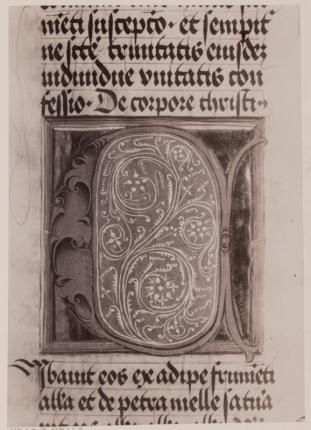 meti suscepto · et sempit
ne scte trinitatis eiusdez
indiuidue vnitatis con
fessio · De corpore christi ·
C
ybauit eos ex adipe frumeti
alla et de petra melle satura